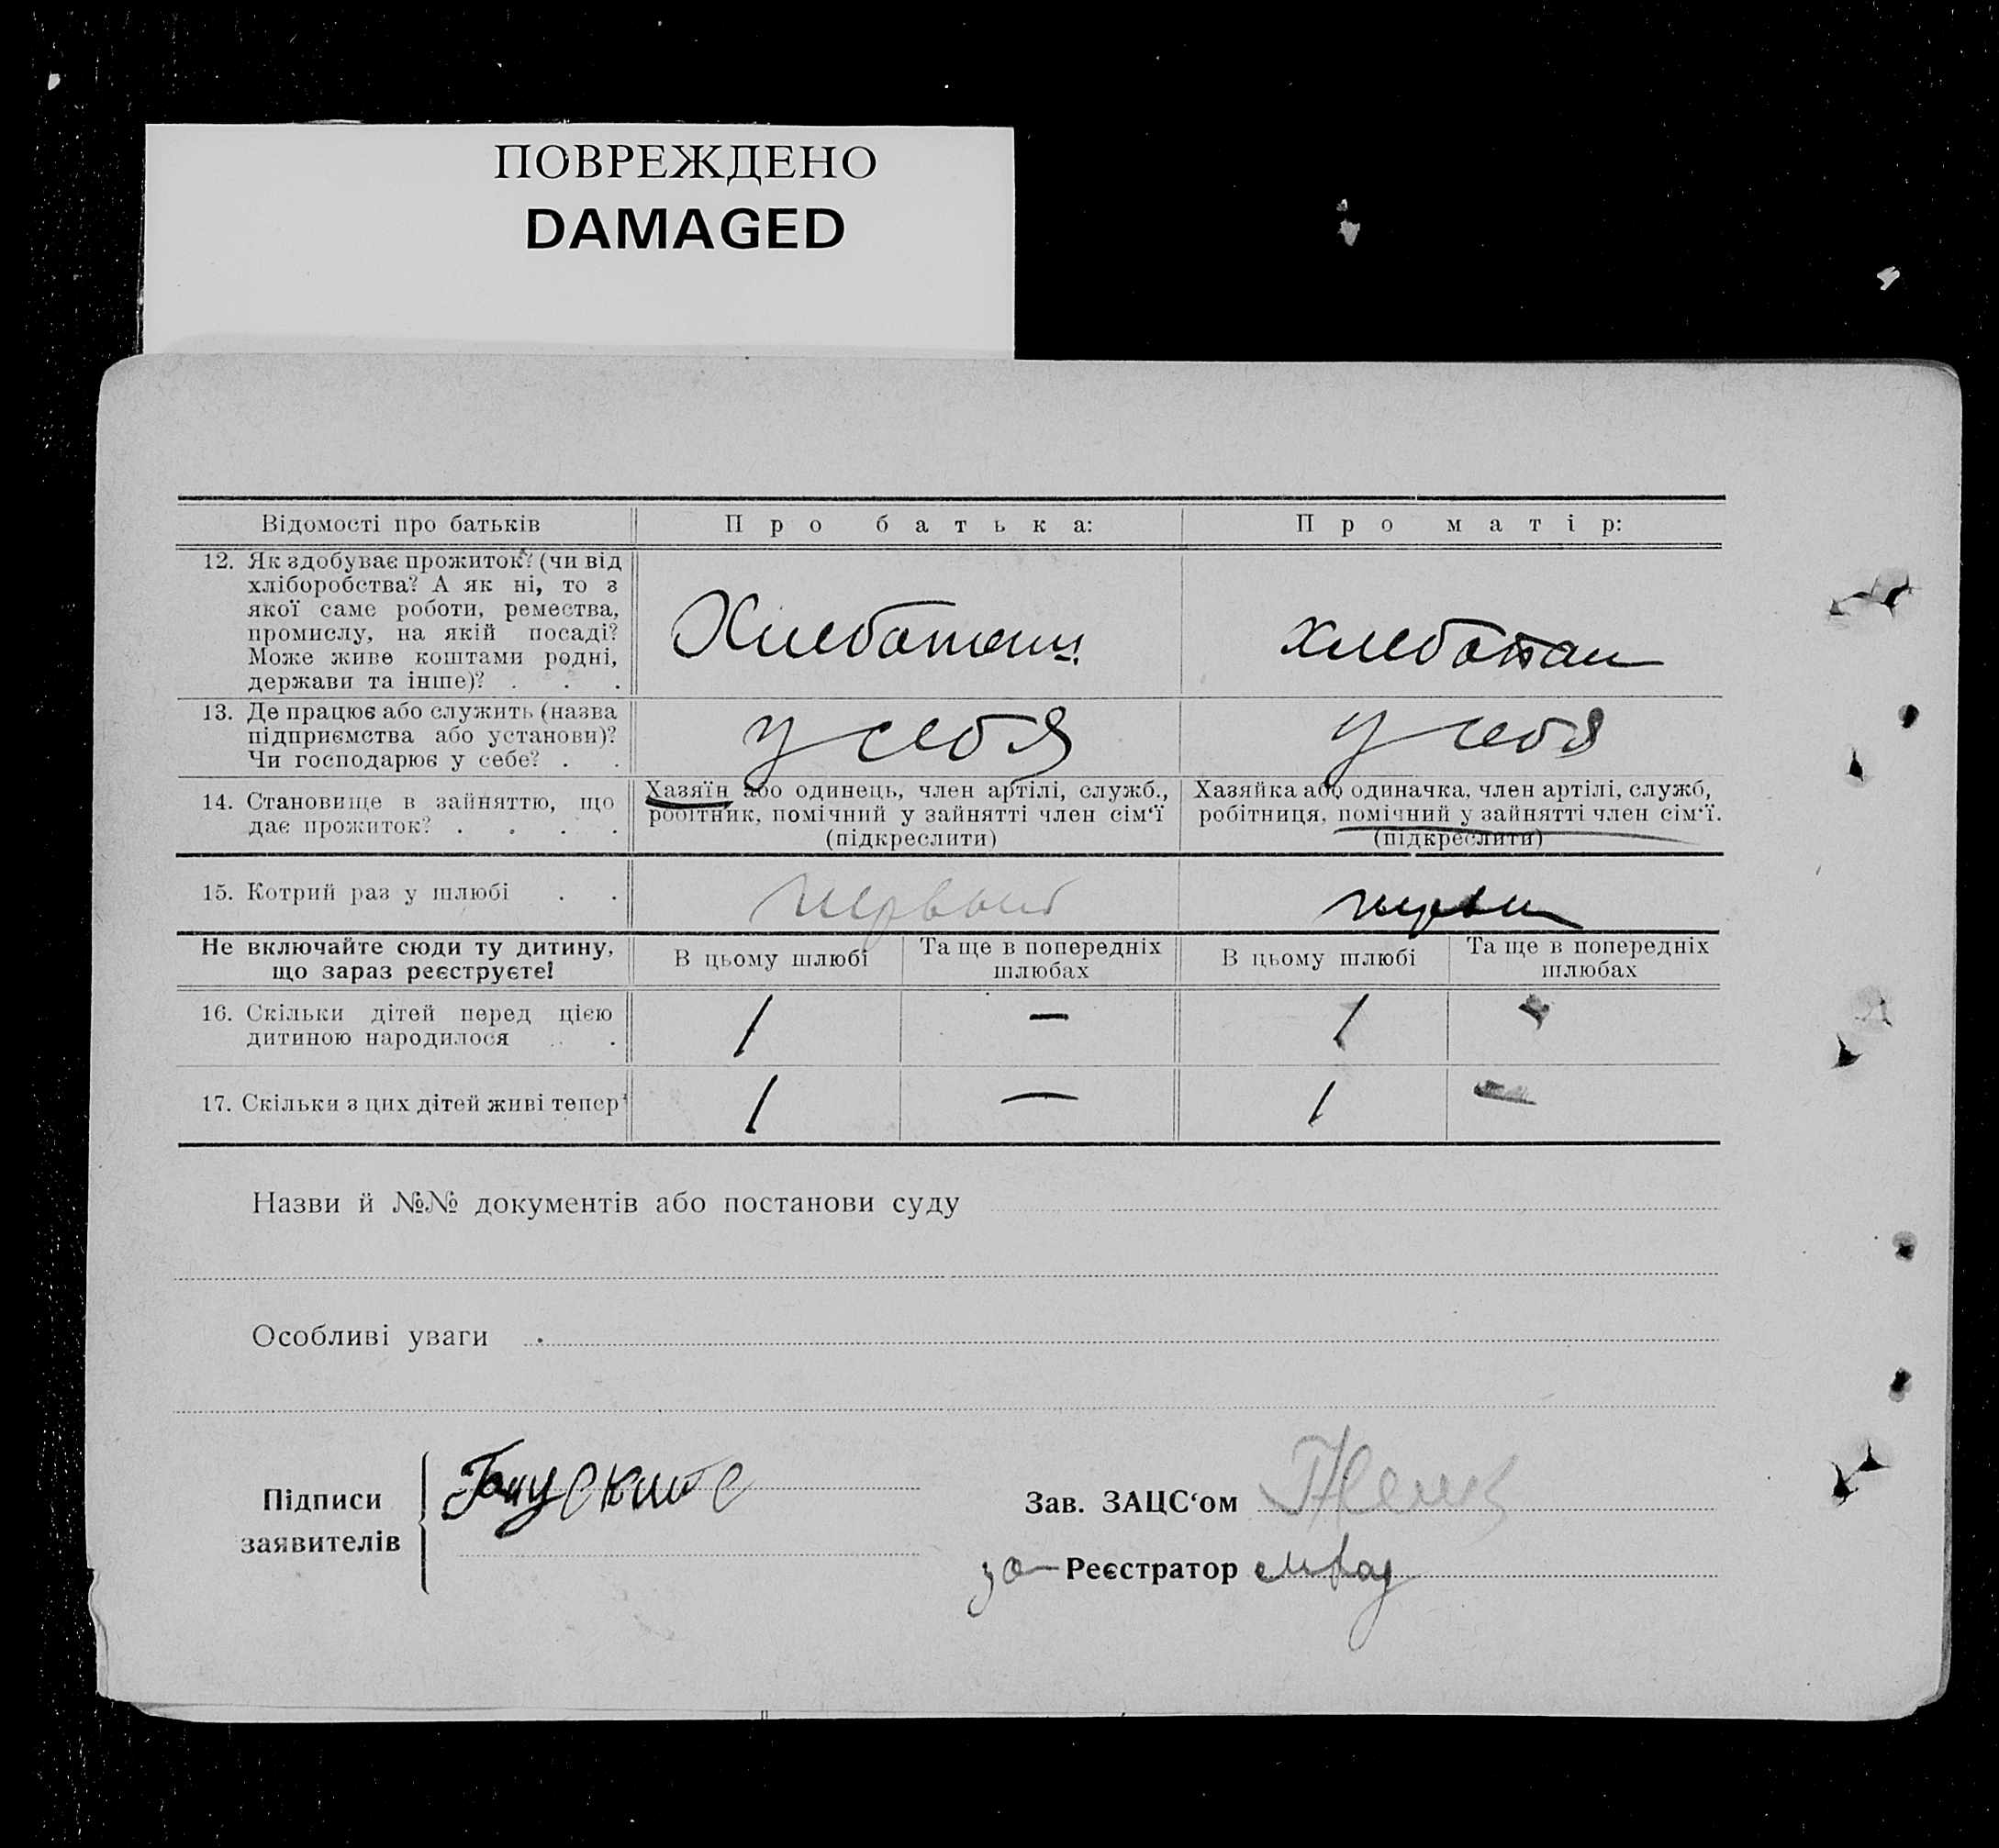 ПОВРЕЖДЕНО
DAMAGED
Відомості про батьків
Про батька:
Про матір:
12. Як здобуває прожиток? (чи від
хліборобства? А як ні, то з
якої саме роботи, ремества,
промислу, на якій посаді?
Може живе коштами родні,
держави та інше)? . . .
Хлебопашц
хлебопаш
13. Де працює або служить (назва
підприємства або установи)?
Чи господарює у себе? . .
у себя
у себя
14. Становище в зайняттю, що
дає прожиток? . . . .
Хазяїн або одинець, член артілі, служб.,
робітник, помічний у зайнятті член сім'ї
(підкреслити)
Хазяйка або одиначка, член артілі, служб,
робітниця, помічний у зайнятті член сім'ї.
(підкреслити)
15. Котрий раз у шлюбі . .
первый
первы
Не включайте сюди ту дитину,
що зараз реєструєте!
В цьому шлюбі
Та ще в попередніх
шлюбах
В цьому шлюбі
Та ще в попередніх
шлюбах
16. Скільки дітей перед цією
дитиною народилося . .
1
—
1
17. Скільки з цих дітей живі тепер
1
—
1
—
Назви й №№ документів або постанови суду
Особливі уваги
Підписи
заявителів
Зав. ЗАЦС'ом
за Реєстратор